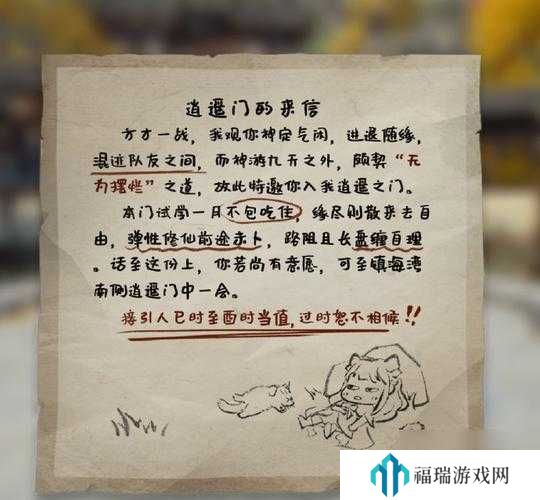 逍遥门的来信
方才一战，我观你神定气闲，进退随缘，
混迹队友之间，而神游九天之外，颇契“无
为摆烂”之道，故此特邀你入我逍遥之门。
本门试学一月不包吃住，缘尽则散来去自
由，弹性修仙前途未卜，路阻且长盘缠自理
。话至这份上，你若尚有意愿，可至镇海湾
南侧逍遥门中一会。
接引人巳时至酉时当值，过时恕不相候!!
福瑞游戏网